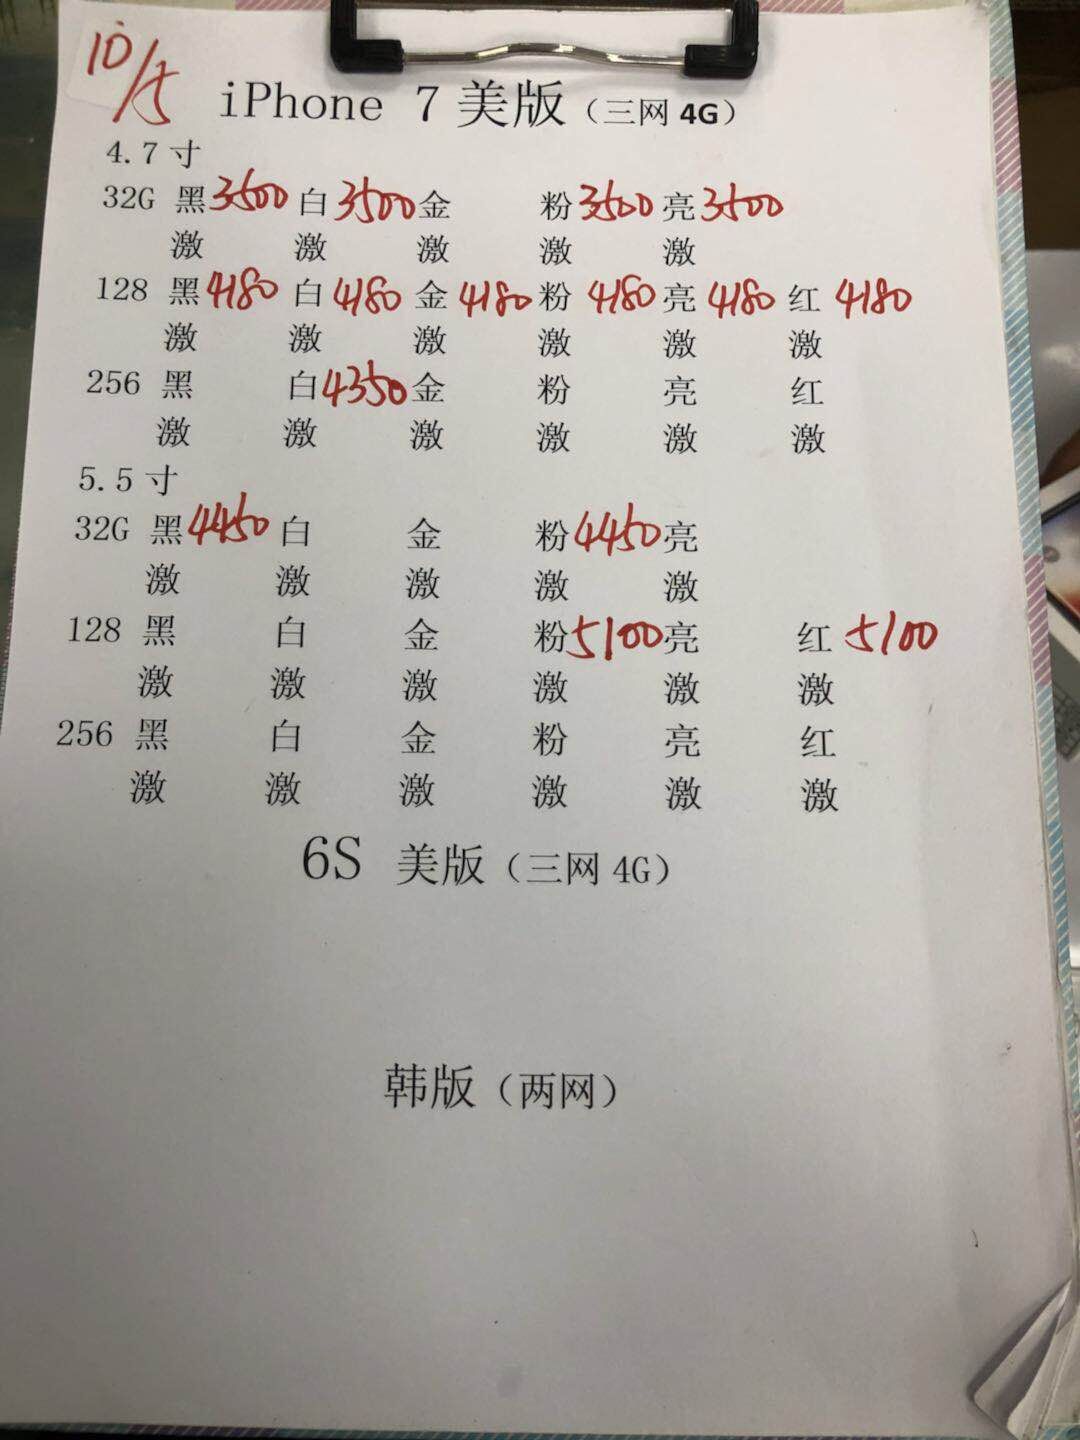 10/5
iPhone 7 美版（三网 4G）
4.7 寸
32G 黑 3500 白 3500 金 粉 3500 亮 3500
激 激 激 激 激
128 黑 4180 白 4180 金 4180 粉 4180 亮 4180 红 4180
激 激 激 激 激 激
256 黑 白 4350 金 粉 亮 红
激 激 激 激 激 激
5.5 寸
32G 黑 4450 白 金 粉 4450 亮
激 激 激 激 激
128 黑 白 金 粉 5100 亮 红 5100
激 激 激 激 激 激
256 黑 白 金 粉 亮 红
激 激 激 激 激 激
6S 美版（三网 4G）
韩版（两网）